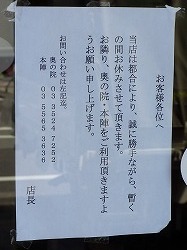 お客様各位へ
当店は都合により、誠に勝手ながら、暫く
の間お休みさせて頂きます。
お隣り、奥の院・本陣をご利用頂きますよ
うお願い申し上げます。
店長
お問い合わせは左記迄。
奥の院 03 3524 7252
本陣 03 5565 3636